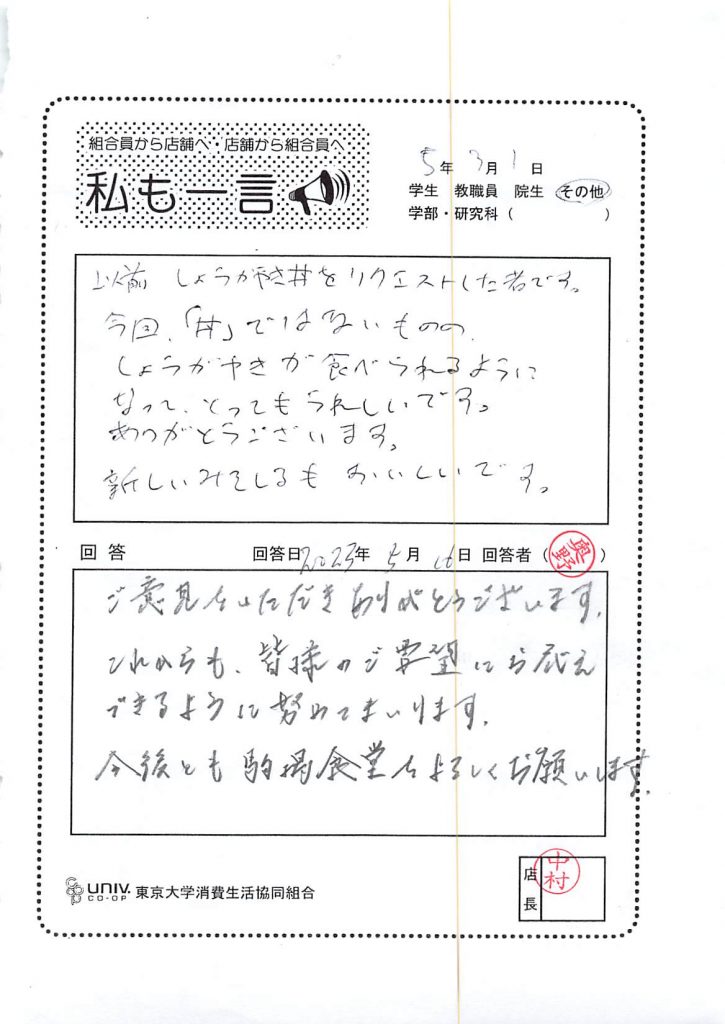 組合員から店舗へ・店舗から組合員へ
私も一言
5年 3月 1日
学生 教職員 院生 その他
学部・研究科（ ）
以前 しょうがやき丼をリクエストした者です。
今回、「丼」ではないものの、
しょうがやきが食べられるように
なって、とってもうれしいです。
ありがとうございます。
新しいみそしるも おいしいです。
回答 回答日2023年 5月 16日 回答者（奥野）
ご意見をいただきありがとうございます。
これからも、皆様のご要望にお応え
できるように努めてまいります。
今後とも駒場食堂をよろしくお願いします。
UNIV. CO-OP 東京大学消費生活協同組合
店長 中村